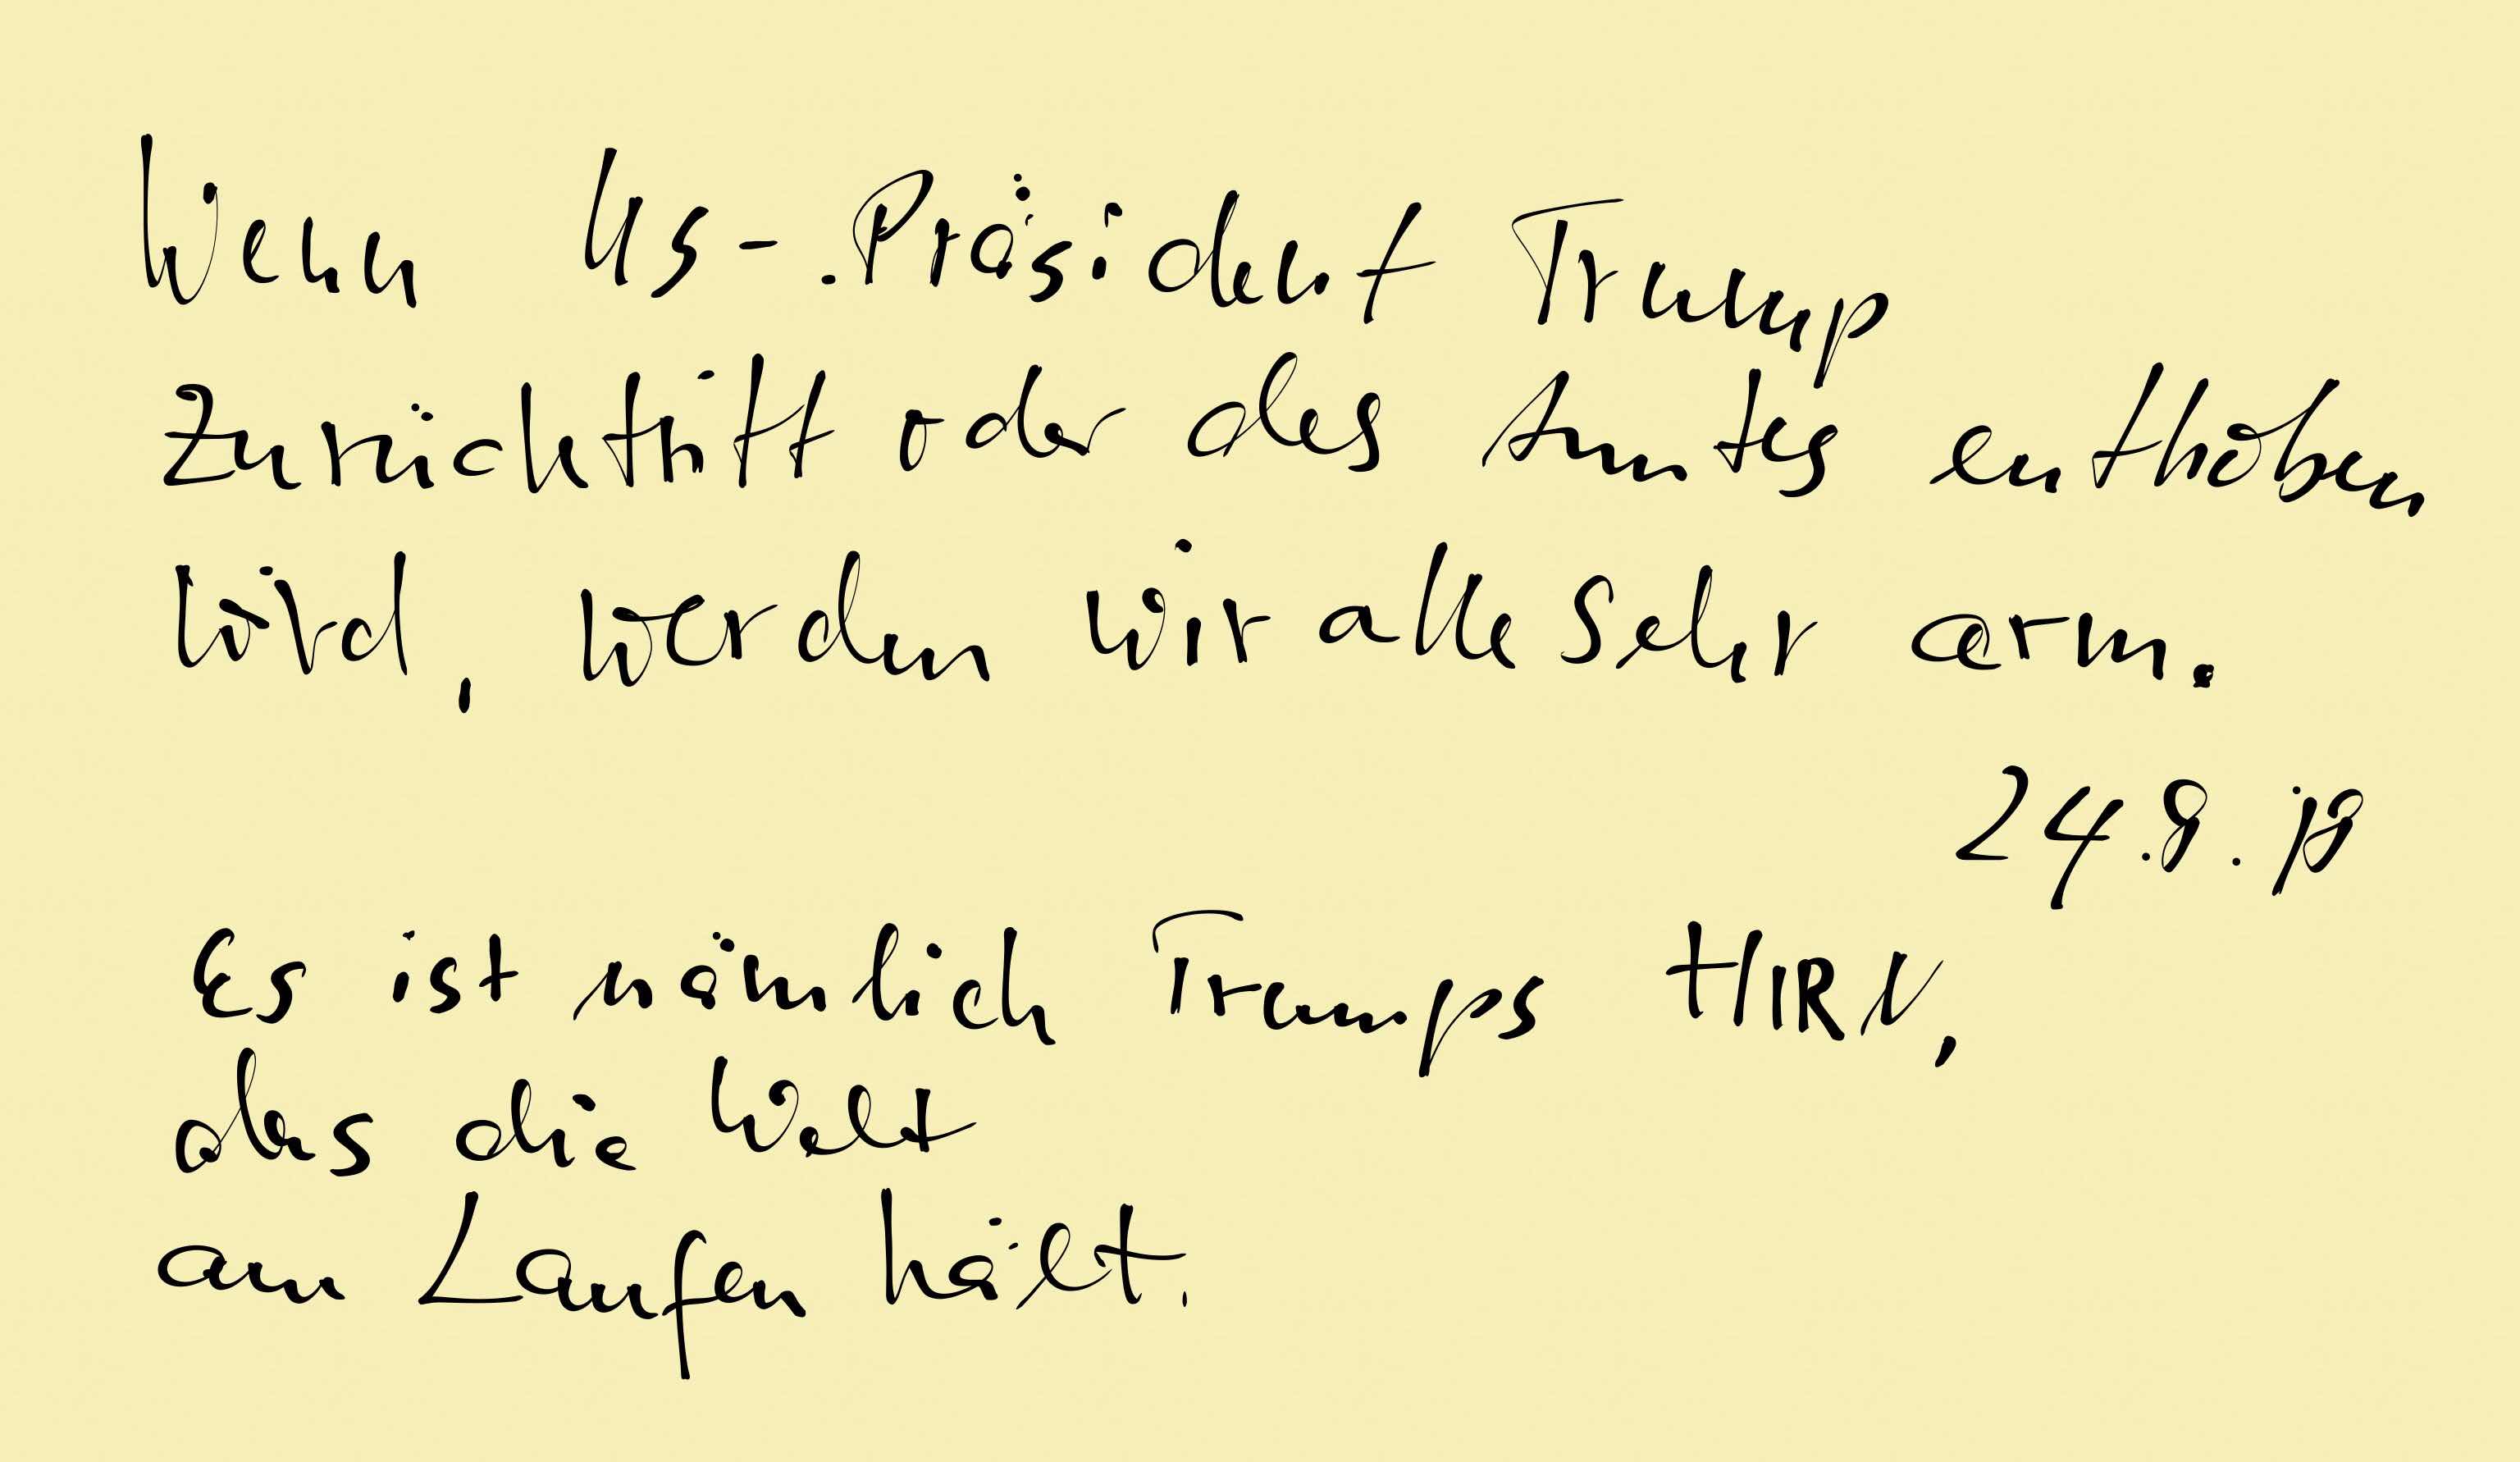 Wenn US-Präsident Trump
zurücktritt oder des Amtes enthoben
wird, werden wir alle sehr arm.
24.8.18
Es ist nämlich Trumps HIRN,
das die Welt
am Laufen hält.